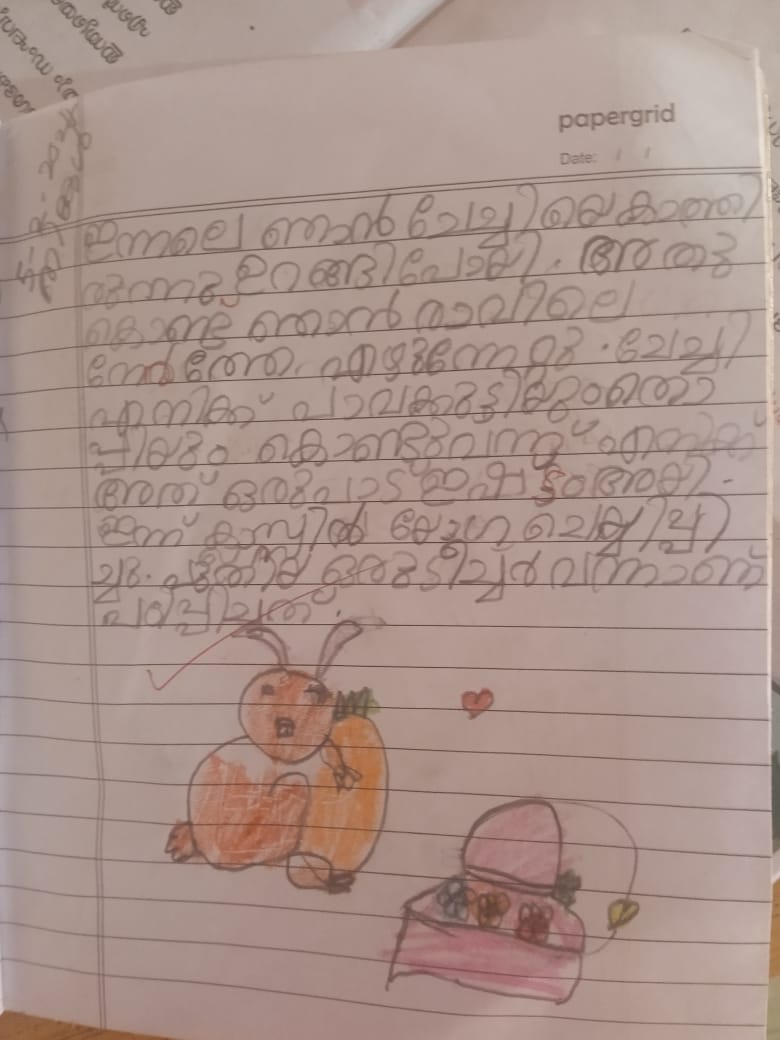 papergrid
Date: / /
ഇന്നലെ ഞാൻ ചേച്ചിയെ കാത്തി
രുന്നു ഉറങ്ങി പോയി. അതു
കൊണ്ട് ഞാൻ രാവിലെ
നേരത്തേ എഴുന്നേറ്റു. ചേച്ചി
എനിക്ക് പാവകുട്ടിയും തൊ
പ്പിയും കൊണ്ടുവന്നു എനിക്ക്
അത് ഒരുപാട് ഇഷ്ട്ടം ആയി.
ഇന്ന് ക്ലാസ്സിൽ യോഗ ചെയ്യിപ്പി
ച്ചു. പുതിയ ഒരു ടീച്ചർ വന്നാണ്
പഠിപ്പിച്ചത്.